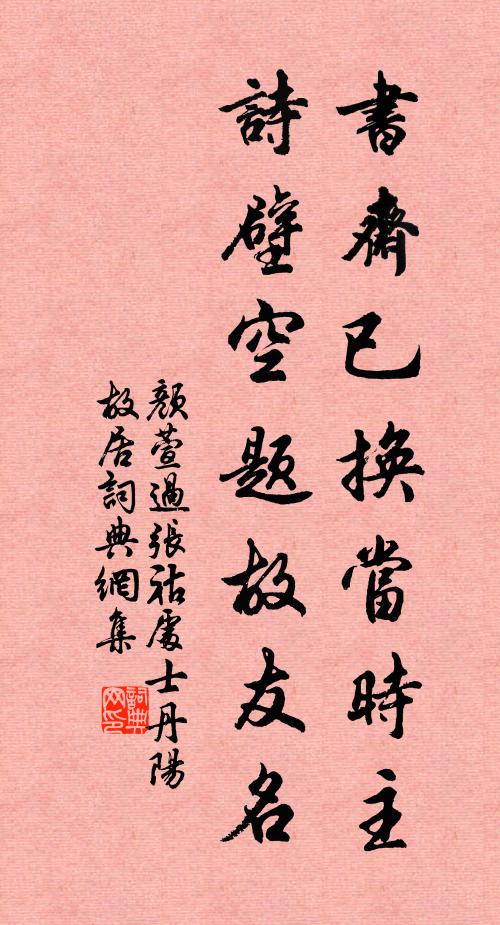 書齋已換當時主
詩壁空題故友名
顏萱過張祜處士丹陽
故居詞典網集
詞典网印